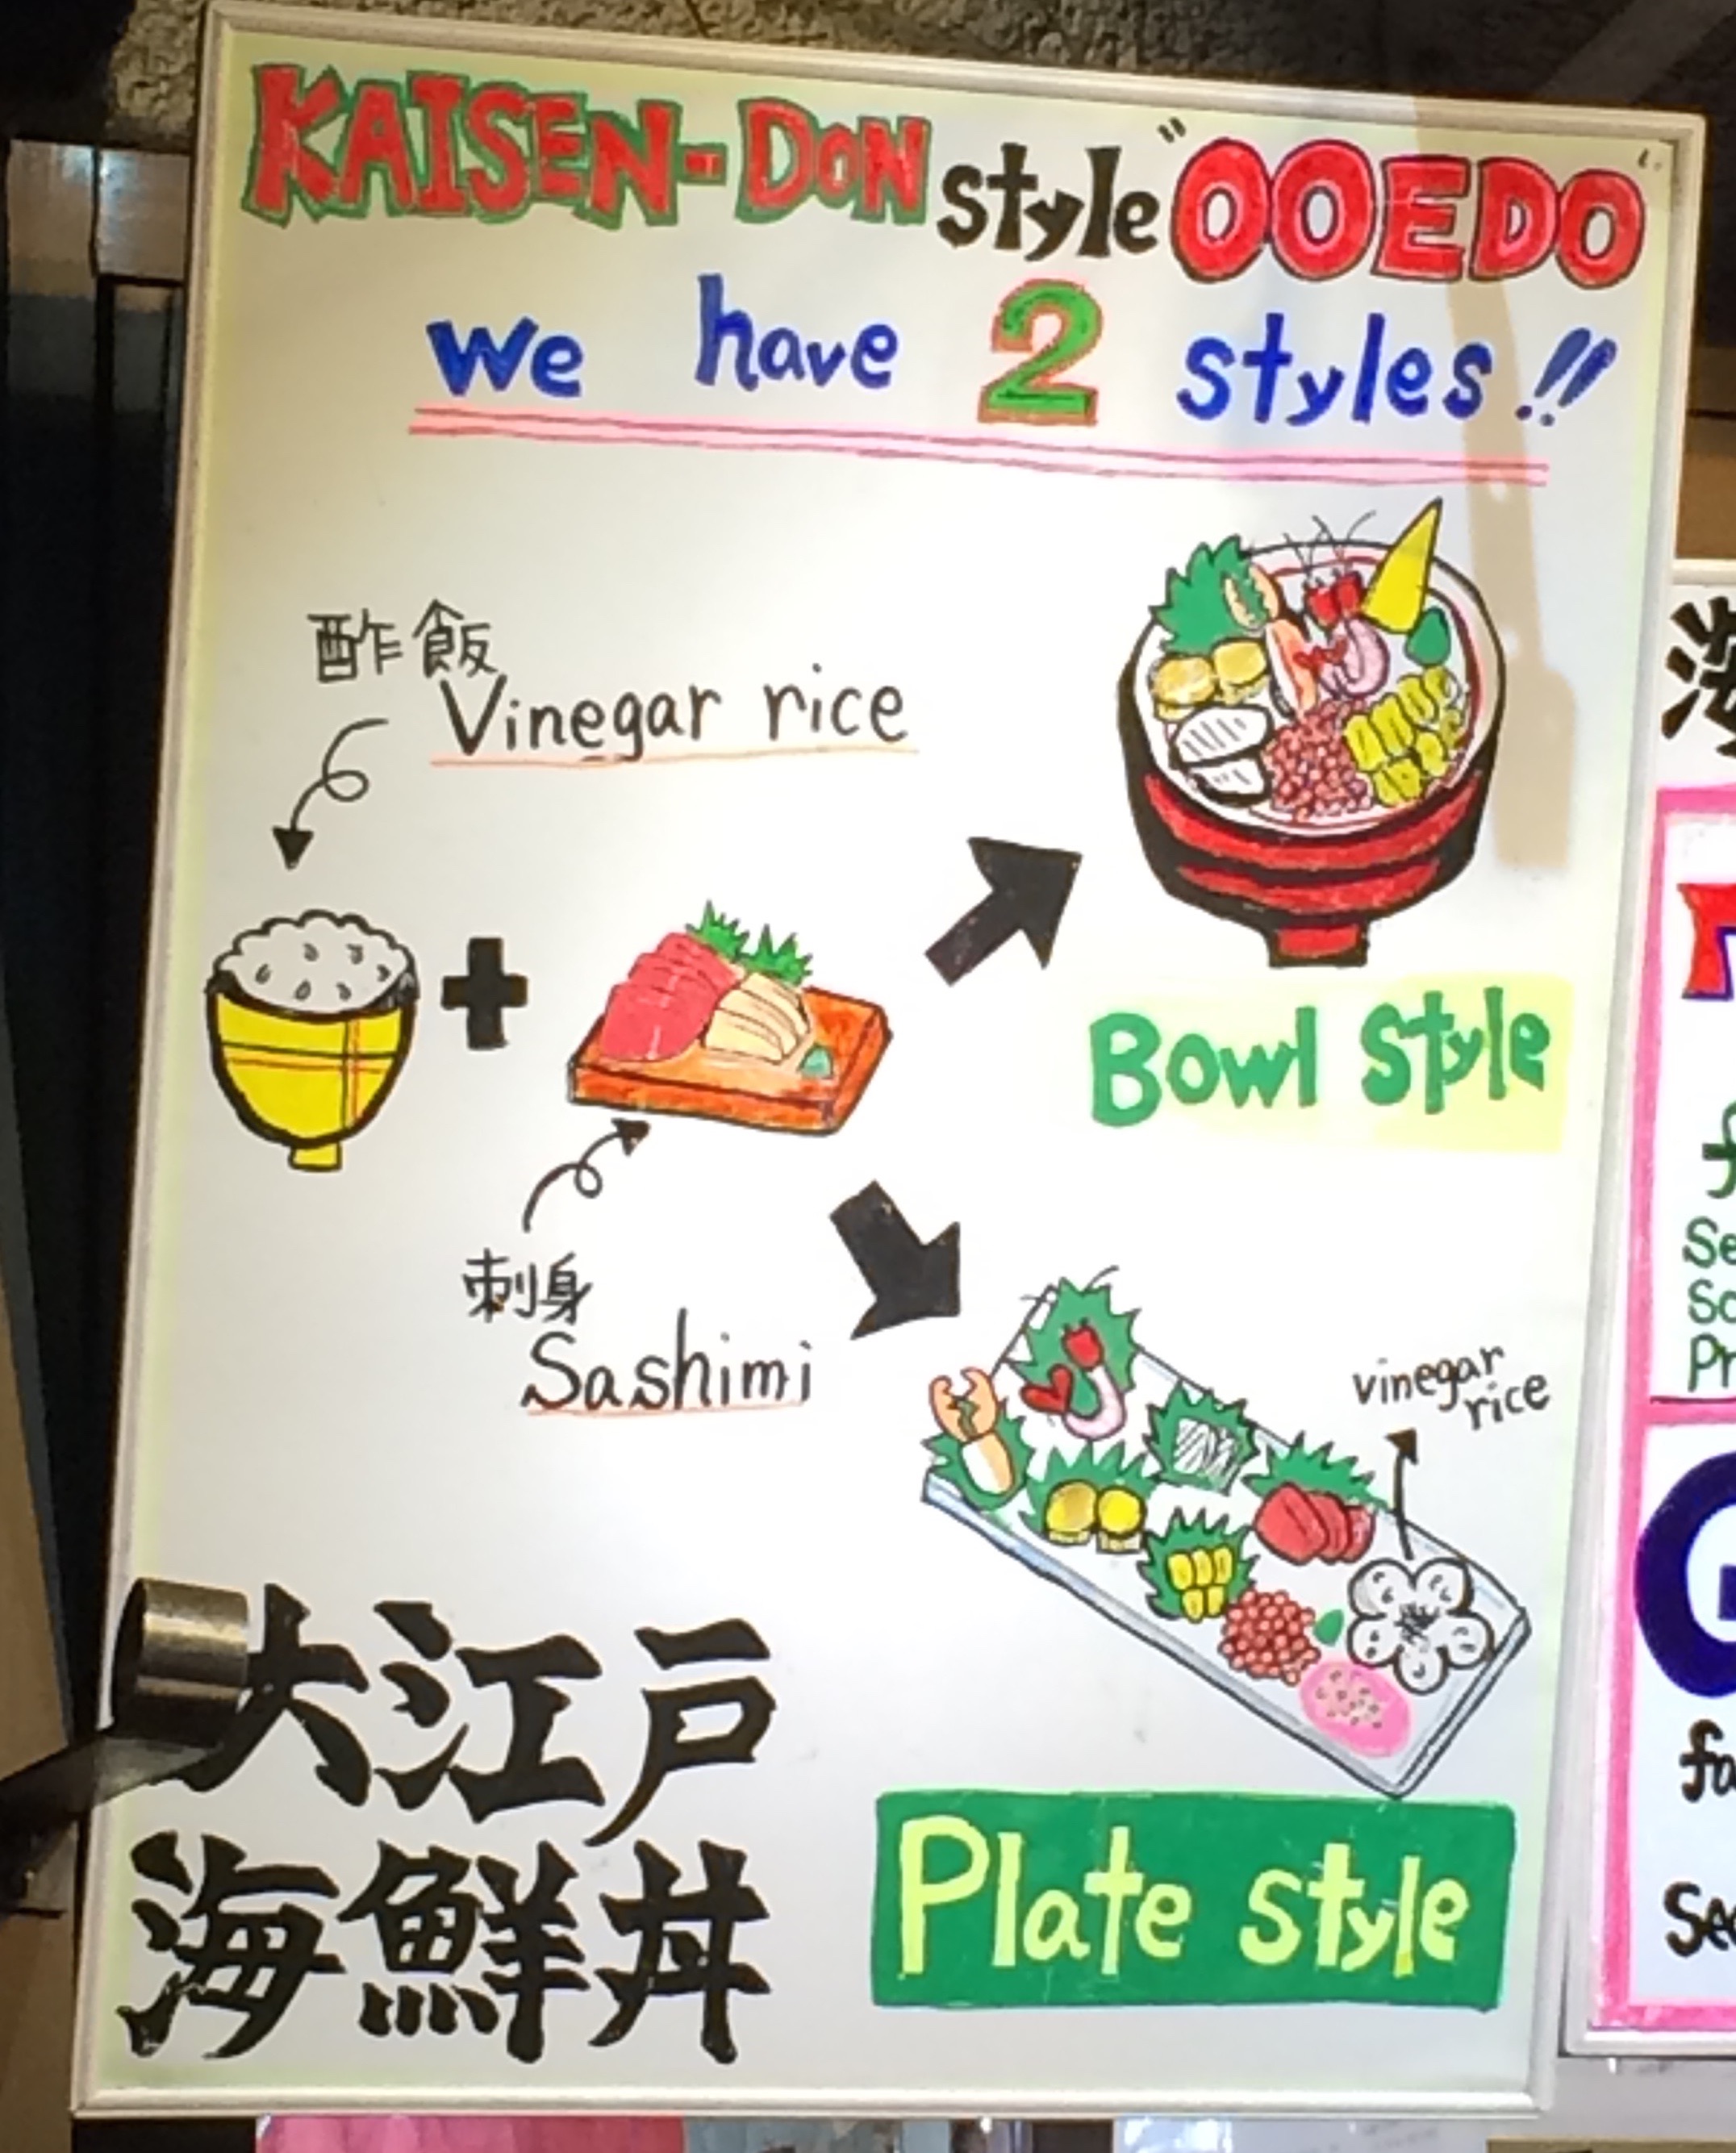 KAISEN-DON style "OOEDO"
we have 2 styles!!
酢飯
Vinegar rice
Bowl style
刺身
Sashimi
vinegar
rice
大江戸
海鮮丼
Plate style